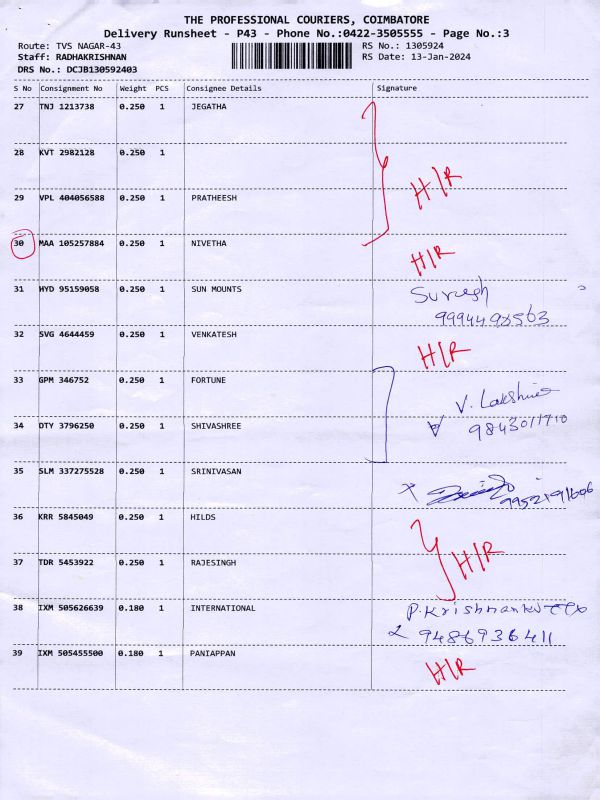 THE PROFESSIONAL COURIERS, COIMBATORE
Delivery Runsheet - P43 - Phone No.:0422-3505555 - Page No.:3
Route: TVS NAGAR-43 RS No.: 1305924
Staff: RADHAKRISHNAN RS Date: 13-Jan-2024
DRS No.: DCJB130592403
S No Consignment No Weight PCS Consignee Details Signature
27 TNJ 1213738 0.250 1 JEGATHA
28 KVT 2982128 0.250 1
29 VPL 404056588 0.250 1 PRATHEESH H/R
30 MAA 105257884 0.250 1 NIVETHA H/R
31 HYD 95159058 0.250 1 SUN MOUNTS Suresh
9994498563
32 SVG 4644459 0.250 1 VENKATESH H/R
33 GPM 346752 0.250 1 FORTUNE V. Lakshmi
34 DTY 3796250 0.250 1 SHIVASHREE 9843011710
35 SLM 337275528 0.250 1 SRINIVASAN
36 KRR 5845049 0.250 1 HILDS
37 TDR 5453922 0.250 1 RAJESINGH H/R
38 IXM 505626639 0.180 1 INTERNATIONAL
9486936411
39 IXM 505455500 0.180 1 PANIAPPAN H/R